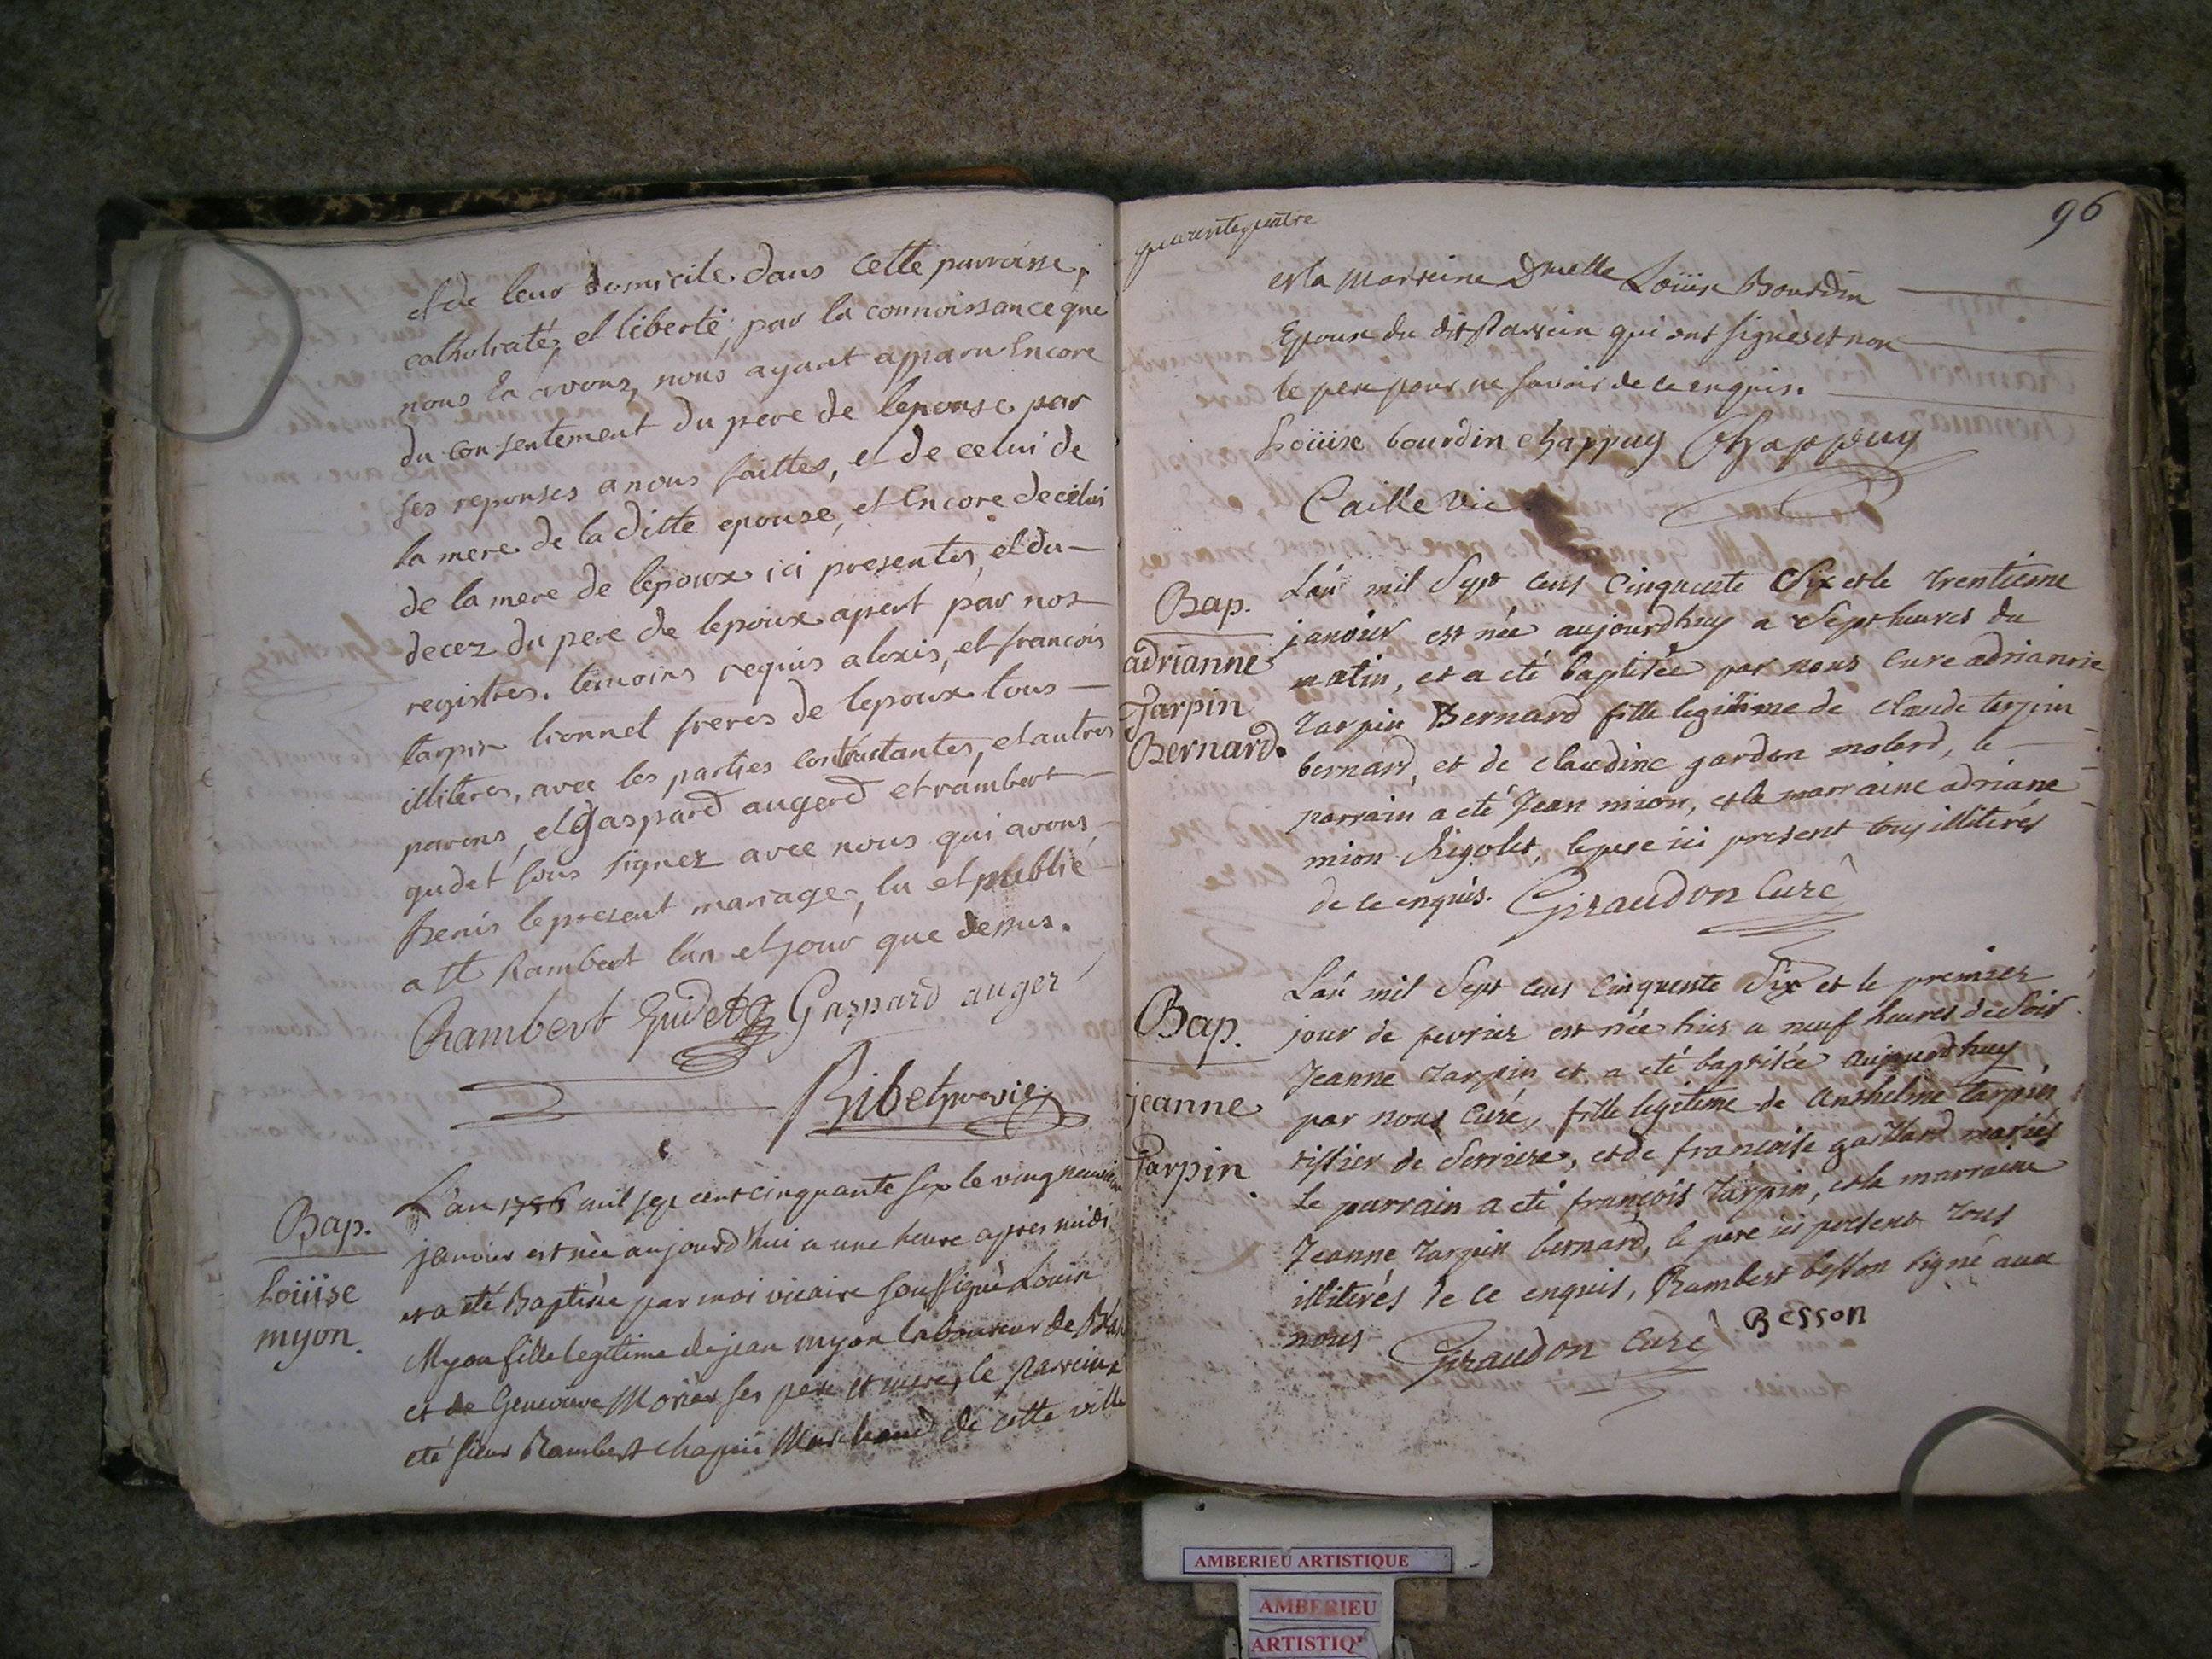 et de leur domicile dans cette parroisse,
catholicité, et liberté, par la connoissance que
nous en avons, nous ayant apparu Encore
du consentement du pere de lepouse par
ses reponses a nous faittes, et de celui de
la mere de la ditte epouse, et Encore de celui
de la mere de lepoux ici presentes, et du
decez du pere de lepoux apert par nos
registres. temoins requis alexis, et francois
tarpin lionnet freres de lepoux tous
illiteres, avec les parties contractantes, et autres
parens, et Gaspard augerd et rambert
gudet sous signez avec nous qui avons
Benis le present mariage, lu et publié
a St Rambert l'an et jour que dessus.
Rambert Guidet Gaspard auger
Ribet vic
Bap.
Loüise
myon.
L'an 1756 mil sept cent cinquante six le vingt neuvieme
janvier est née aujourd'hui a une heure apres midi
et a eté Baptisée par moi vicaire soussigné Louise
Myon fille legitime de jean myon laboureur de
et de Genevieve Morier ses pere et mere, le Parrein a
eté sieur Rambert chapui Marchand de cette ville
quarente quatre
96
et la Marreine Dmelle Loüise Bourdin
Epouse du dit Parrein qui ont signés et non
le pere pour ne savoir de ce enquis.
Loüise bourdin chappuy Chappuy
Caille vic.
Bap.
adrianne
Tarpin
Bernard.
L'an mil Sept cens Cinquente Six et le trentieme
janvier est née aujourdhuy a Sept heures du
matin, et a eté baptisée par nous Curé adrianne
Tarpin Bernard fille legitime de Claude terpin
bernard, et de claudine gardon molard, le
parrain a eté Jean mion, et la marraine adriane
mion Rigolet, le pere ici present tous illiterés
de ce enquis. Giraudon Curé
Bap.
jeanne
Tarpin
L'an mil Sept cens Cinquente Six et le premier
jour de fevrier est née hier a neuf heures de soir
Jeanne Tarpin et a eté baptisée aujourdhuy
par nous Curé, fille legitime de Anthelme tarpin
tissier de Serriere, et de françoise gaillard mariés
Le parrain a eté françois Tarpin, et la marraine
Jeanne Tarpin bernard, le pere ici present tous
illiterés de ce enquis, Rambert besson signé avec
nous Giraudon Curé Besson
AMBERIEU ARTISTIQUE
AMBERIEU
ARTISTIQ